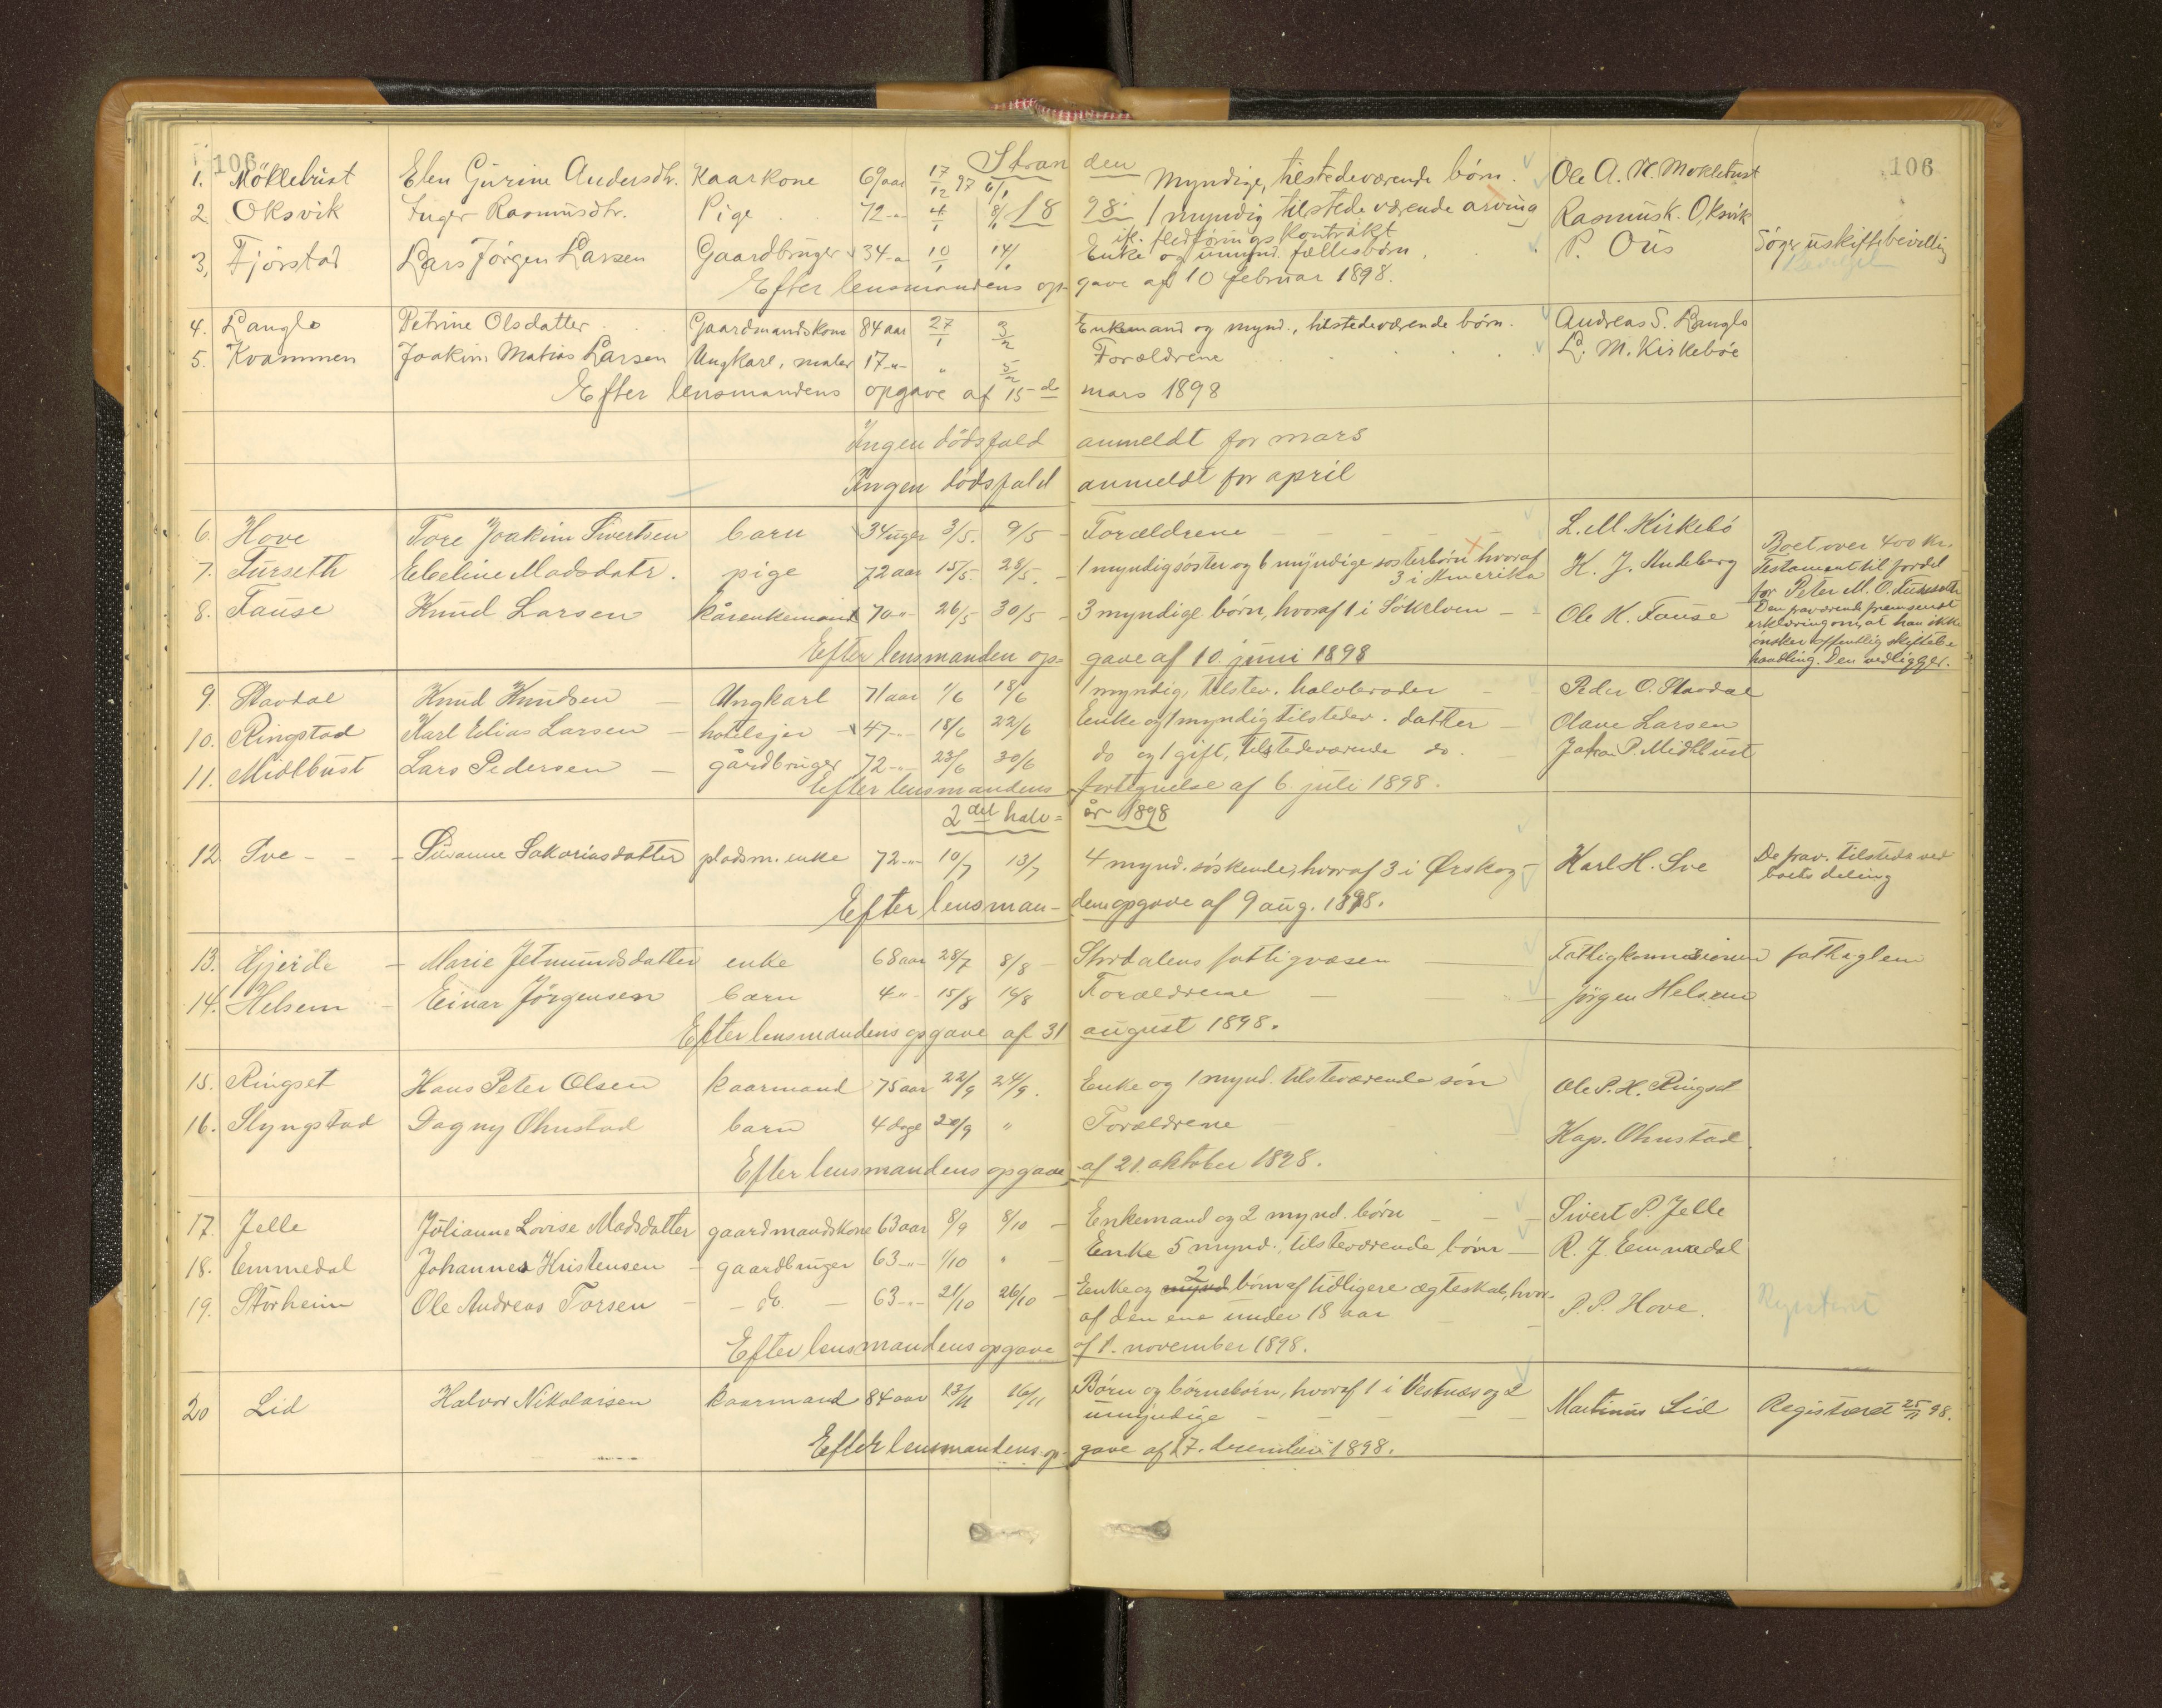 106 106
Stranden
1898.
1. Möklebust Elen Gurine Andersdtr. Kaarkone 69 aar 17/12 97 6/1 Myndige, tilstedeværende børn. Ole A. K. Moklebust
2 Oksvik Inger Rasmusdtr. Pige 72 -"- 4/1 8/1 1 myndig tilstedeværende arving Rasmus K. Oksvik
ifl. fledføringskontrakt
3, Fjørstad Lars Jørgen Larsen Gaardbruger 34 -"- 10/1 14/1 Enke og umynd. fællesbørn. P. Ous Søger uskiftebevilling
Efter lensmandens opgave af 10 februar 1898.
4. Langlo Petrine Olsdatter Gaardmandskone 84 aar 27/1 3/2 Enkemand og mynd., tilstedeværende børn. Andreas S. Langlo
5. Kvammen Joakim Matias Larsen Ungkarl, maler 17 -"- " 5/2 Forældrene L. M. Kirkebøe
Efter lensmandens opgave af 15de mars 1898
Ingen dödsfald anmeldt for mars
Ingen dödsfald anmeldt for april
6. Hove Tore Joakim Sivertsen barn 34 uger 3/5. 9/5 - Forældrene L. M. Kirkebö
7. Furseth Eveline Madsdatr. pige 72 aar 15/5. 28/5. - 1 myndig søster og 6 myndige søsterbørn hvoraf
3 i Amerika K. J. Andeberg Boet over 400 kr.
Testament til fordel
for Peter M. O. Furseth
8. Fause Knud Larsen kårenkemand 70 -"- 26/5 30/5 - 3 myndige børn, hvoraf 1 i Søkelven - Ole K. Fause Den fraværende fremsendt
erklæring om, at han ikke
ønsker offentlig skiftebe
handling. Den vedligger.
Efter lensmanden op= gave af 10. juni 1898
9. Stavdal Knud Knudsen Ungkarl 71 aar 1/6 18/6 1 myndig, tilstev. halvbroder Peder O. Stavdal
10. Ringstad Karl Elias Larsen hotelejer 47 -"- 18/6 22/6 Enke og 1 myndig tilstedev. datter Olave Larsen
11. Midtbust Lars Pedersen gårdbruger 72 -"- 23/6 30/6 do og 1 gift, tilstedeværende do. Johan P. Midtbust
Efter lensmandens fortegnelse af 6. juli 1898.
2det halv= år 1898
12 Sve Susanne Sakariasdatter pladsm. enke 72 -"- 10/7 13/7 4 mynd. søskende, hvoraf 3 i Ørskog Karl H. Sve De frav. tilstede ved
boets deling
Efter lensmandens opgave af 9 aug. 1898.
13. Gjerde Marie Jetmundsdatter enke 68 aar 28/7 8/8 - Stordalens fattigvæsen Fattigkommisionen fattiglem
14. Helsem Einar Jörgensen barn 4 -"- 15/8 16/8 Forældrene Jørgen Helsem
Efter lensmandens opgave af 31 august 1898.
15. Ringset Hans Peter Olsen kaarmand 75 aar 22/9 24/9. Enke og 1 mynd. tilsteværende søn Ole P. H. Ringset
16. Slyngstad Dagny Ohnstad barn 4 dage 20/9 " Forældrene Kap. Ohnstad.
Efter lensmandens opgave af 21. oktober 1898.
17. Jelle Julianne Lovise Madsdatter gaardmandskone 63 aar 8/9 8/10 - Enkemand og 2 mynd. børn Sivert P. Jelle
18. Emmedal Johannes Kristensen gaardbruger 63 -"- 1/10 " - Enke 5 mynd., tilsteværende børn R. J. Emmedal
19. Storheim Ole Andreas Torsen - do - 63 -"- 21/10 26/10 - Enke og mynd 2 børn af tidligere ægteskab, hvor-
af den ene under 18 aar P. P. Hove.
Efter lensmandens opgave af 1. november 1898.
20 Lid Halvor Nikolaisen kaarmand 84 aar 13/11 16/11 Børn og børnebørn, hvoraf 1 i Vestnæs og 2
umyndige Martinus Lid Registreret 25/11 98.
Efter lensmandens opgave af 17. december 1898.